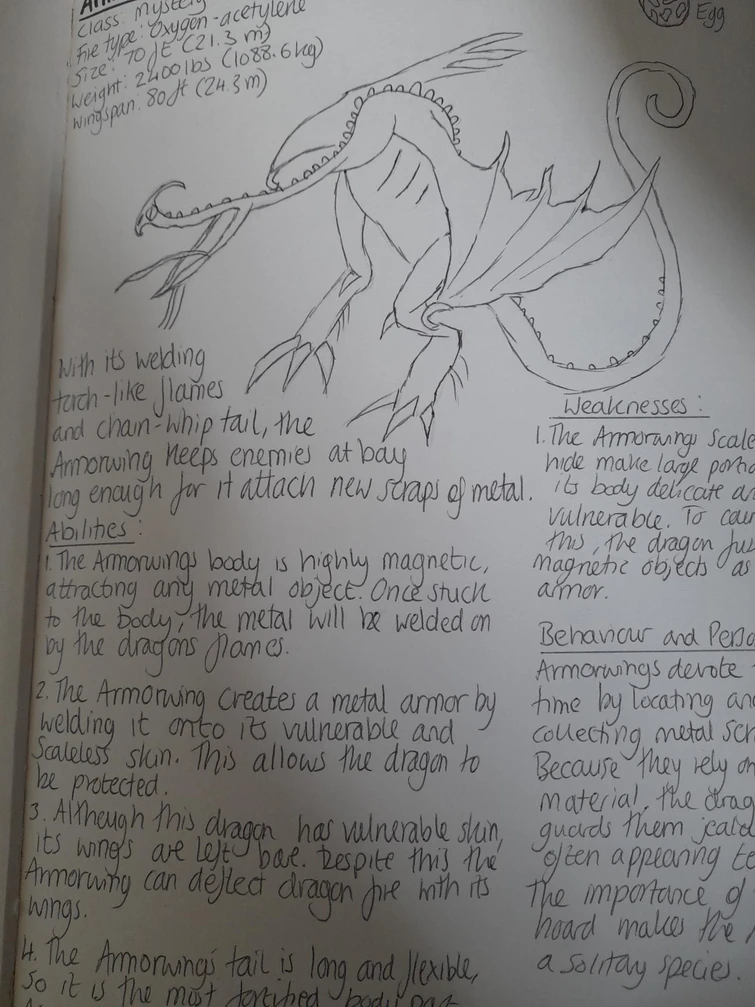 Class: Mystery
Fire type: Oxygen-acetylene
Size: 70 ft (21.3 m)
Weight: 2400 lbs (1088.6 kg)
Wingspan: 80 ft (24.3 m)
Egg
With its welding
torch-like flames
and chain-whip tail, the
Armorwing keeps enemies at bay
long enough for it attach new scraps of metal.
Abilities:
1. The Armorwings body is highly magnetic,
attracting any metal object. Once stuck
to the body, the metal will be welded on
by the dragons flames.
2. The Armorwing creates a metal armor by
welding it onto its vulnerable and
scaleless skin. This allows the dragon to
be protected.
3. Although this dragon has vulnerable skin,
its wings are left bare. Despite this the
Armorwing can deflect dragon fire with its
wings.
4. The Armorwing's tail is long and flexible,
so it is the most fortified body part
Weaknesses:
1. The Armorwings scale
hide make large
its body delicate
vulnerable. To
this, the dragon
magnetic objects as
armor.
Behaviour and
Armorwings devote
time by locating
collecting metal
Because they rely on
material, the
guards them
often appearing
The importance of
hoard makes the
a solitary species.